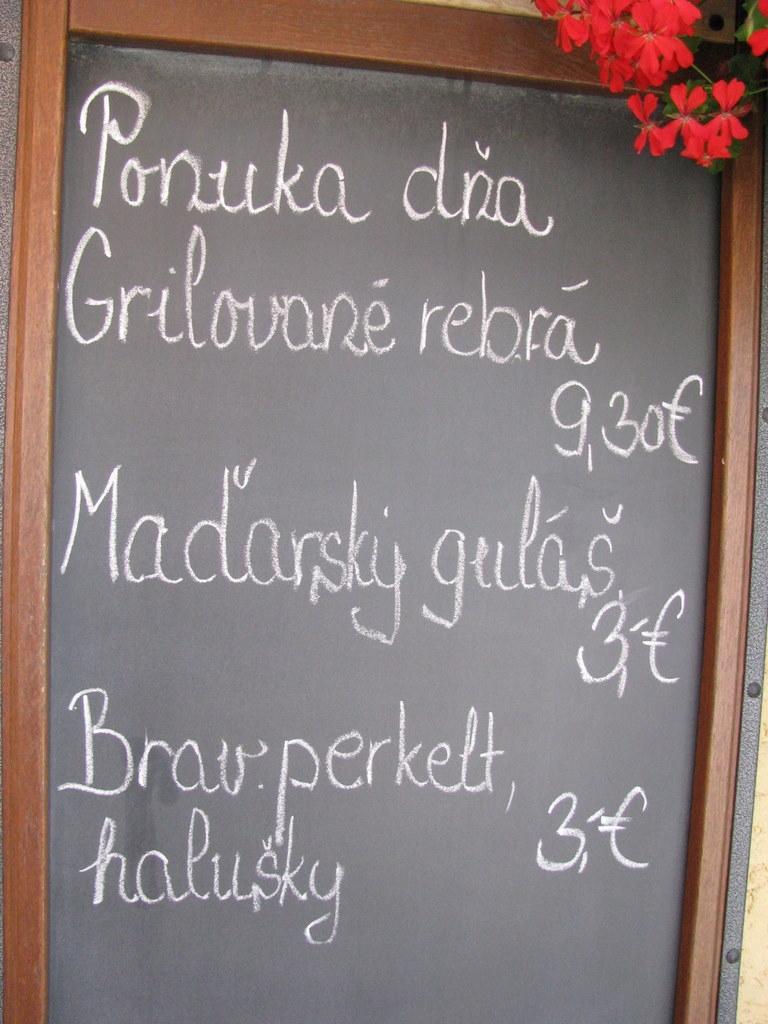 Ponuka dňa
Grilované rebrá
9,30€
Maďarský guláš
3,-€
Brav. perkelt,
3,-€
halušky